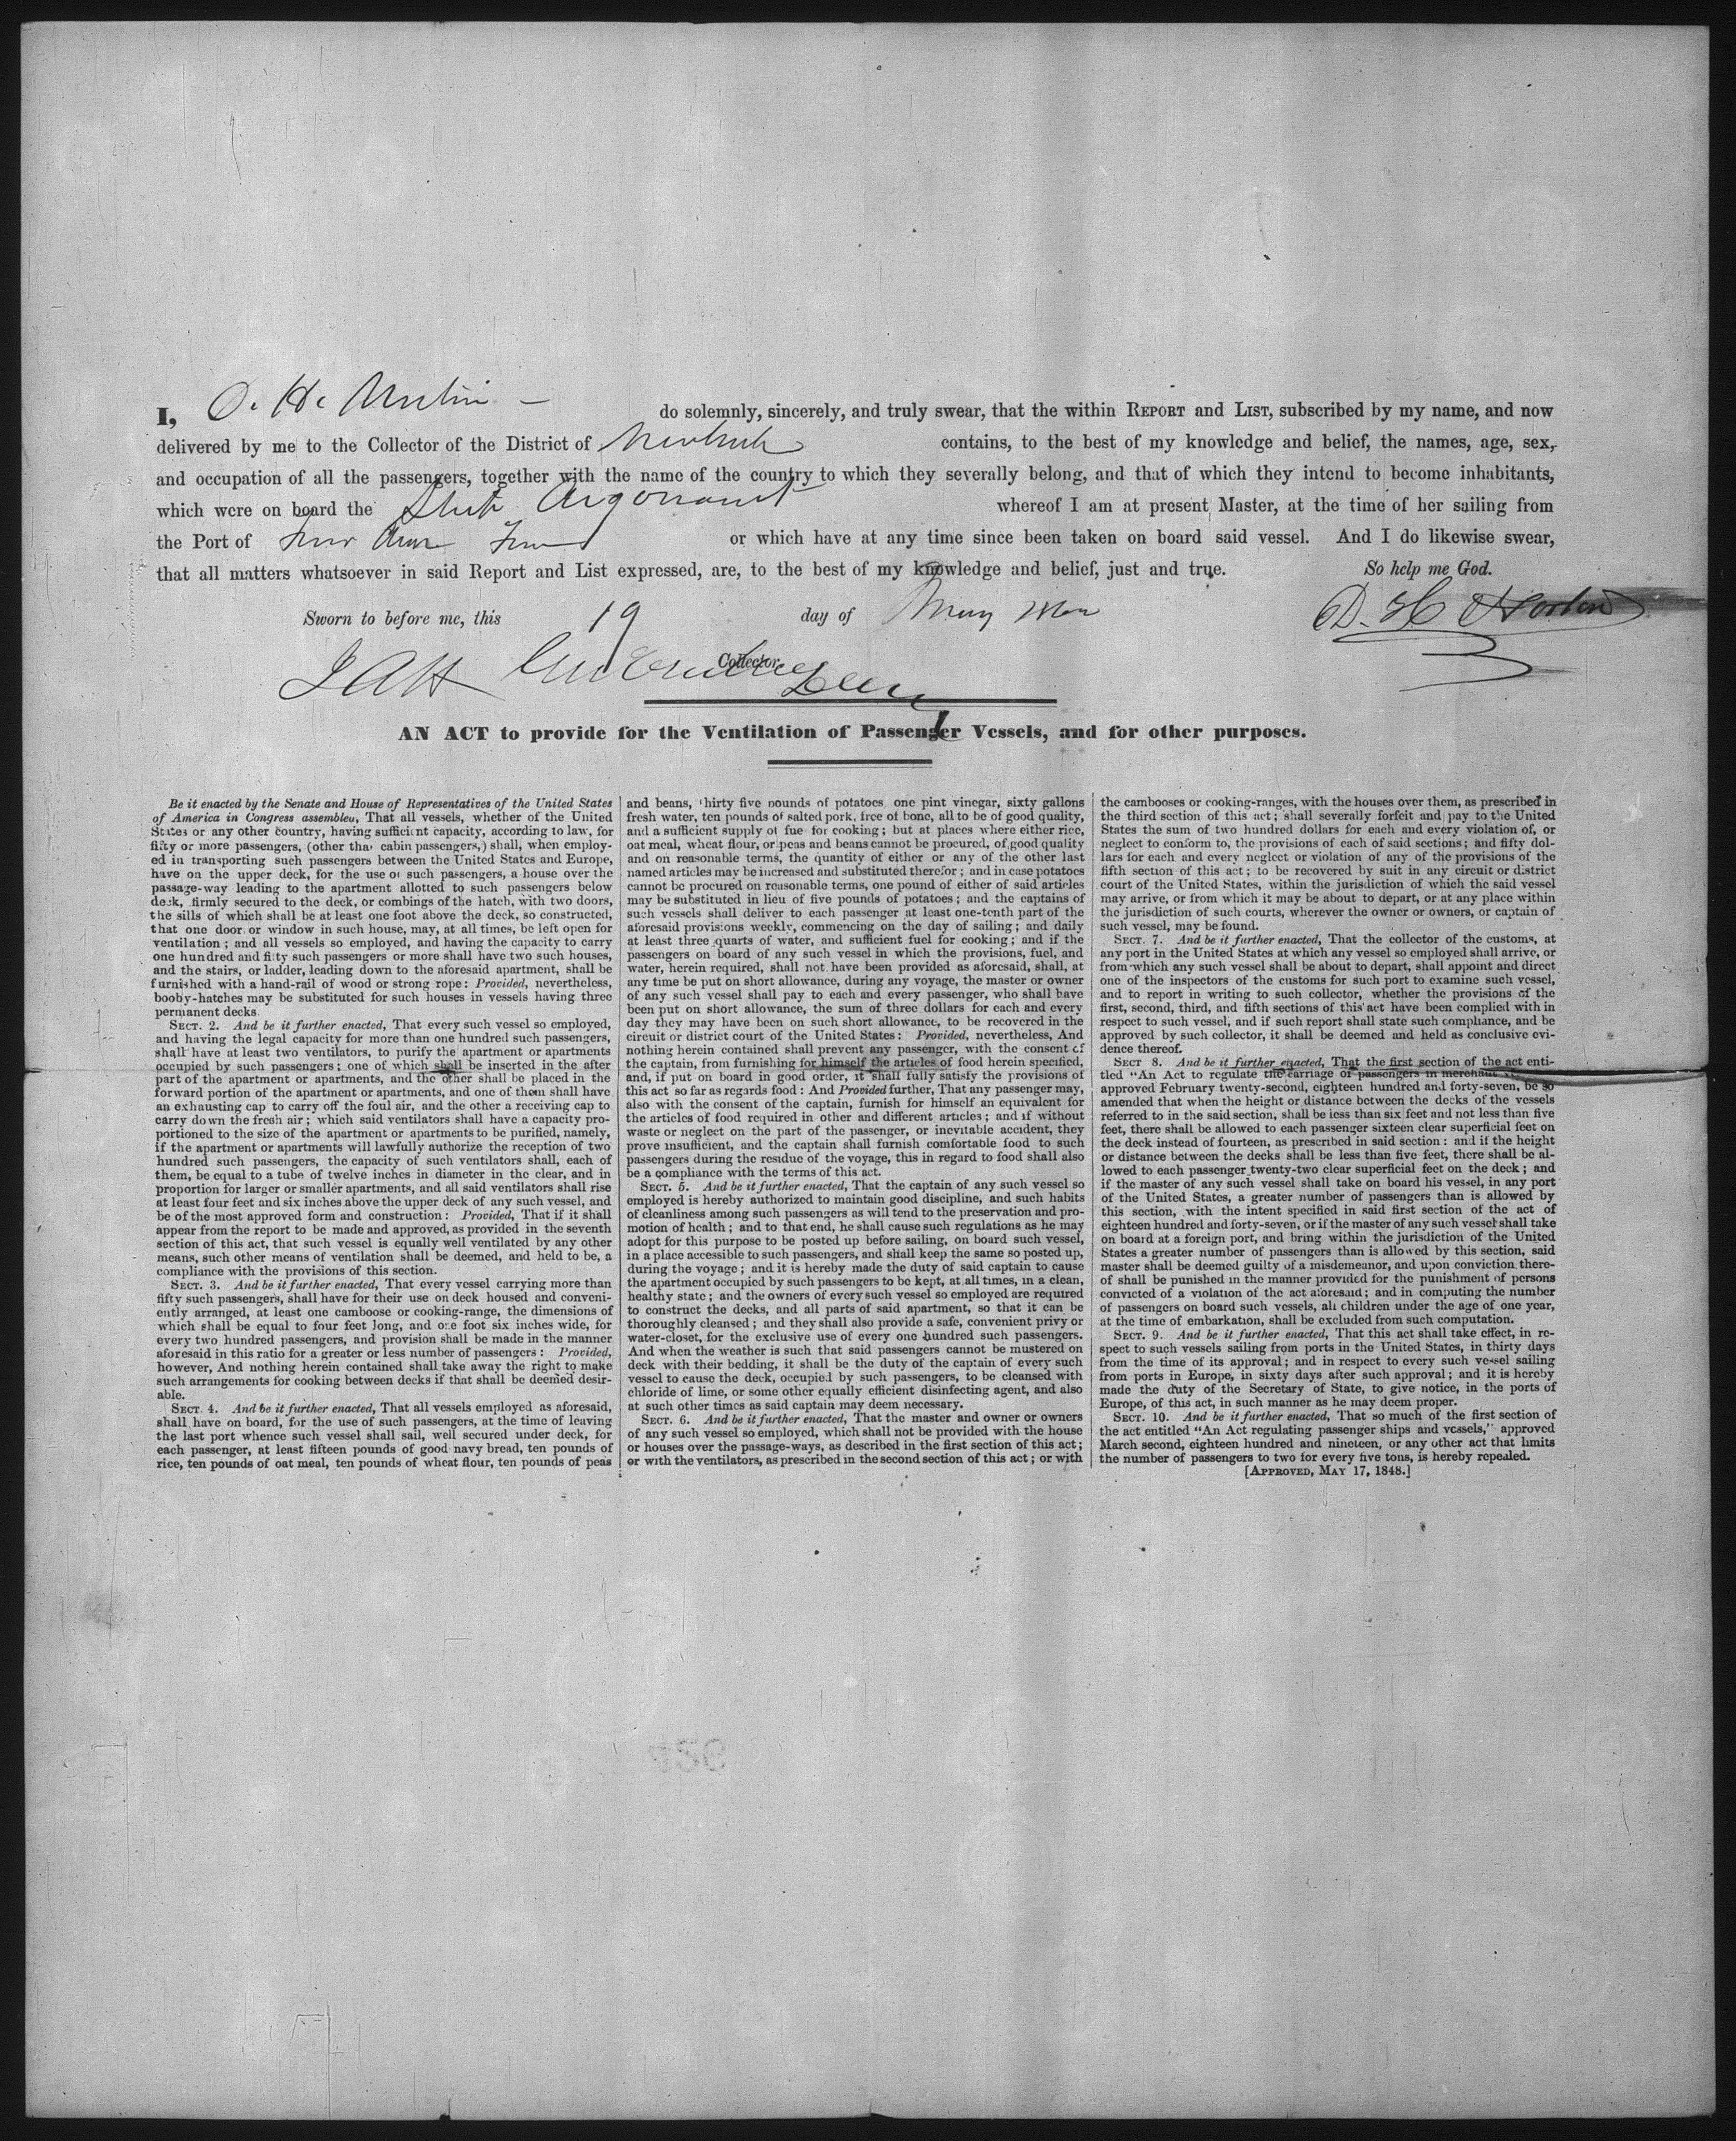 I, do solemnly, sincerely, and truly swear, that the within REPORT and LIST, subscribed by my name, and now
delivered by me to the Collector of the District of contains, to the best of my knowledge and belief, the names, age, sex,
and occupation of all the passengers, together with the name of the country to which they severally belong, and that of which they intend to become inhabitants,
which were on board the Argonaut whereof I am at present Master, at the time of her sailing from
the Port of or which have at any time since been taken on board said vessel. And I do likewise swear,
that all matters whatsoever in said Report and List expressed, are, to the best of my knowledge and belief, just and true. So help me God.
Sworn to before me, this 19 day of May D. H. Norton
Collector.
AN ACT to provide for the Ventilation of Passenger Vessels, and for other purposes.
Be it enacted by the Senate and House of Representatives of the United States
of America in Congress assembled, That all vessels, whether of the United
States or any other country, having sufficient capacity, according to law, for
fifty or more passengers, (other than cabin passengers,) shall, when employ-
ed in transporting such passengers between the United States and Europe,
have on the upper deck, for the use of such passengers, a house over the
passage-way leading to the apartment allotted to such passengers below
deck, firmly secured to the deck, or combings of the hatch, with two doors,
the sills of which shall be at least one foot above the deck, so constructed,
that one door or window in such house, may, at all times, be left open for
ventilation; and all vessels so employed, and having the capacity to carry
one hundred and fifty such passengers or more shall have two such houses,
and the stairs, or ladder, leading down to the aforesaid apartment, shall be
furnished with a hand-rail of wood or strong rope: Provided, nevertheless,
booby-hatches may be substituted for such houses in vessels having three
permanent decks.
SECT. 2. And be it further enacted, That every such vessel so employed,
and having the legal capacity for more than one hundred such passengers,
shall have at least two ventilators, to purify the apartment or apartments
occupied by such passengers; one of which shall be inserted in the after
part of the apartment or apartments, and the other shall be placed in the
forward portion of the apartment or apartments, and one of them shall have
an exhausting cap to carry off the foul air, and the other a receiving cap to
carry down the fresh air; which said ventilators shall have a capacity pro-
portioned to the size of the apartment or apartments to be purified, namely,
if the apartment or apartments will lawfully authorize the reception of two
hundred such passengers, the capacity of such ventilators shall, each of
them, be equal to a tube of twelve inches in diameter in the clear, and in
proportion for larger or smaller apartments, and all said ventilators shall rise
at least four feet and six inches above the upper deck of any such vessel, and
be of the most approved form and construction: Provided, That if it shall
appear from the report to be made and approved, as provided in the seventh
section of this act, that such vessel is equally well ventilated by any other
means, such other means of ventilation shall be deemed, and held to be, a
compliance with the provisions of this section.
SECT. 3. And be it further enacted, That every vessel carrying more than
fifty such passengers, shall have for their use on deck housed and conveni-
ently arranged, at least one camboose or cooking-range, the dimensions of
which shall be equal to four feet long, and one foot six inches wide, for
every two hundred passengers, and provision shall be made in the manner
aforesaid in this ratio for a greater or less number of passengers: Provided,
however, And nothing herein contained shall take away the right to make
such arrangements for cooking between decks if that shall be deemed desir-
able.
SECT. 4. And be it further enacted, That all vessels employed as aforesaid,
shall have on board, for the use of such passengers, at the time of leaving
the last port whence such vessel shall sail, well secured under deck, for
each passenger, at least fifteen pounds of good navy bread, ten pounds of
rice, ten pounds of oat meal, ten pounds of wheat flour, ten pounds of peas
and beans, thirty five pounds of potatoes, one pint vinegar, sixty gallons
fresh water, ten pounds of salted pork, free of bone, all to be of good quality,
and a sufficient supply of fuel for cooking; but at places where either rice,
oat meal, wheat flour, or peas and beans cannot be procured, of good quality
and on reasonable terms, the quantity of either or any of the other last
named articles may be increased and substituted therefor; and in case potatoes
cannot be procured on reasonable terms, one pound of either of said articles
may be substituted in lieu of five pounds of potatoes; and the captains of
such vessels shall deliver to each passenger at least one-tenth part of the
aforesaid provisions weekly, commencing on the day of sailing; and daily
at least three quarts of water, and sufficient fuel for cooking; and if the
passengers on board of any such vessel in which the provisions, fuel, and
water, herein required, shall not have been provided as aforesaid, shall, at
any time be put on short allowance, during any voyage, the master or owner
of any such vessel shall pay to each and every passenger, who shall have
been put on short allowance, the sum of three dollars for each and every
day they may have been on such short allowance, to be recovered in the
circuit or district court of the United States: Provided, nevertheless, And
nothing herein contained shall prevent any passenger, with the consent of
the captain, from furnishing for himself the articles of food herein specified,
and, if put on board in good order, it shall fully satisfy the provisions of
this act so far as regards food: And Provided further, That any passenger may,
also with the consent of the captain, furnish for himself an equivalent for
the articles of food required in other and different articles; and if without
waste or neglect on the part of the passenger, or inevitable accident, they
prove insufficient, and the captain shall furnish comfortable food to such
passengers during the residue of the voyage, this in regard to food shall also
be a compliance with the terms of this act.
SECT. 5. And be it further enacted, That the captain of any such vessel so
employed is hereby authorized to maintain good discipline, and such habits
of cleanliness among such passengers as will tend to the preservation and pro-
motion of health; and to that end, he shall cause such regulations as he may
adopt for this purpose to be posted up before sailing, on board such vessel,
in a place accessible to such passengers, and shall keep the same so posted up,
during the voyage; and it is hereby made the duty of said captain to cause
the apartment occupied by such passengers to be kept, at all times, in a clean,
healthy state; and the owners of every such vessel so employed are required
to construct the decks, and all parts of said apartment, so that it can be
thoroughly cleansed; and they shall also provide a safe, convenient privy or
water-closet, for the exclusive use of every one hundred such passengers.
And when the weather is such that said passengers cannot be mustered on
deck with their bedding, it shall be the duty of the captain of every such
vessel to cause the deck, occupied by such passengers, to be cleansed with
chloride of lime, or some other equally efficient disinfecting agent, and also
at such other times as said captain may deem necessary.
SECT. 6. And be it further enacted, That the master and owner or owners
of any such vessel so employed, which shall not be provided with the house
or houses over the passage-ways, as described in the first section of this act;
or with the ventilators, as prescribed in the second section of this act; or with
the cambooses or cooking-ranges, with the houses over them, as prescribed in
the third section of this act; shall severally forfeit and pay to the United
States the sum of two hundred dollars for each and every violation of, or
neglect to conform to, the provisions of each of said sections; and fifty dol-
lars for each and every neglect or violation of any of the provisions of the
fifth section of this act; to be recovered by suit in any circuit or district
court of the United States, within the jurisdiction of which the said vessel
may arrive, or from which it may be about to depart, or at any place within
the jurisdiction of such courts, wherever the owner or owners, or captain of
such vessel, may be found.
SECT. 7. And be it further enacted, That the collector of the customs, at
any port in the United States at which any vessel so employed shall arrive, or
from which any such vessel shall be about to depart, shall appoint and direct
one of the inspectors of the customs for such port to examine such vessel,
and to report in writing to such collector, whether the provisions of the
first, second, third, and fifth sections of this act have been complied with in
respect to such vessel, and if such report shall state such compliance, and be
approved by such collector, it shall be deemed and held as conclusive evi-
dence thereof.
SECT 8. And be it further enacted, That the first section of the act enti-
tled "An Act to regulate the carriage of passengers in merchant
approved February twenty-second, eighteen hundred and forty-seven, be so
amended that when the height or distance between the decks of the vessels
referred to in the said section, shall be less than six feet and not less than five
feet, there shall be allowed to each passenger sixteen clear superficial feet on
the deck instead of fourteen, as prescribed in said section: and if the height
or distance between the decks shall be less than five feet, there shall be al-
lowed to each passenger twenty-two clear superficial feet on the deck; and
if the master of any such vessel shall take on board his vessel, in any port
of the United States, a greater number of passengers than is allowed by
this section, with the intent specified in said first section of the act of
eighteen hundred and forty-seven, or if the master of any such vessel shall take
on board at a foreign port, and bring within the jurisdiction of the United
States a greater number of passengers than is allowed by this section, said
master shall be deemed guilty of a misdemeanor, and upon conviction there-
of shall be punished in the manner provided for the punishment of persons
convicted of a violation of the act aforesaid; and in computing the number
of passengers on board such vessels, all children under the age of one year,
at the time of embarkation, shall be excluded from such computation.
SECT. 9. And be it further enacted, That this act shall take effect, in re-
spect to such vessels sailing from ports in the United States, in thirty days
from the time of its approval; and in respect to every such vessel sailing
from ports in Europe, in sixty days after such approval; and it is hereby
made the duty of the Secretary of State, to give notice, in the ports of
Europe, of this act, in such manner as he may deem proper.
SECT. 10. And be it further enacted, That so much of the first section of
the act entitled "An Act regulating passenger ships and vessels," approved
March second, eighteen hundred and nineteen, or any other act that limits
the number of passengers to two for every five tons, is hereby repealed.
[APPROVED, MAY 17, 1848.]